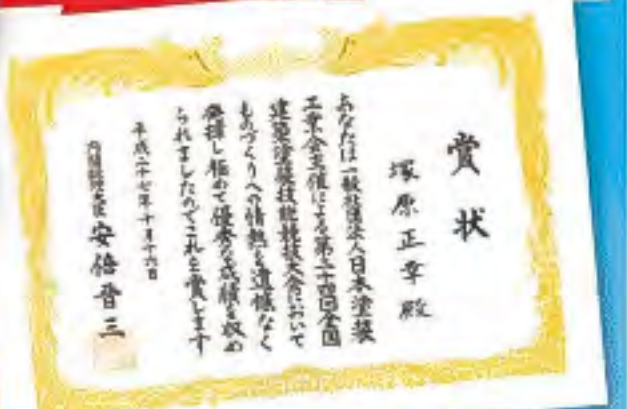 賞状
塚原正幸殿
あなたは一般社団法人日本塗装
工業会主催による第二十四回全国
建築塗装技能競技大会において
ものづくりへの情熱を遺憾なく
発揮し極めて優秀な成績を収め
られましたのでこれを賞します
平成二十七年十月十六日
内閣総理大臣 安倍晋三